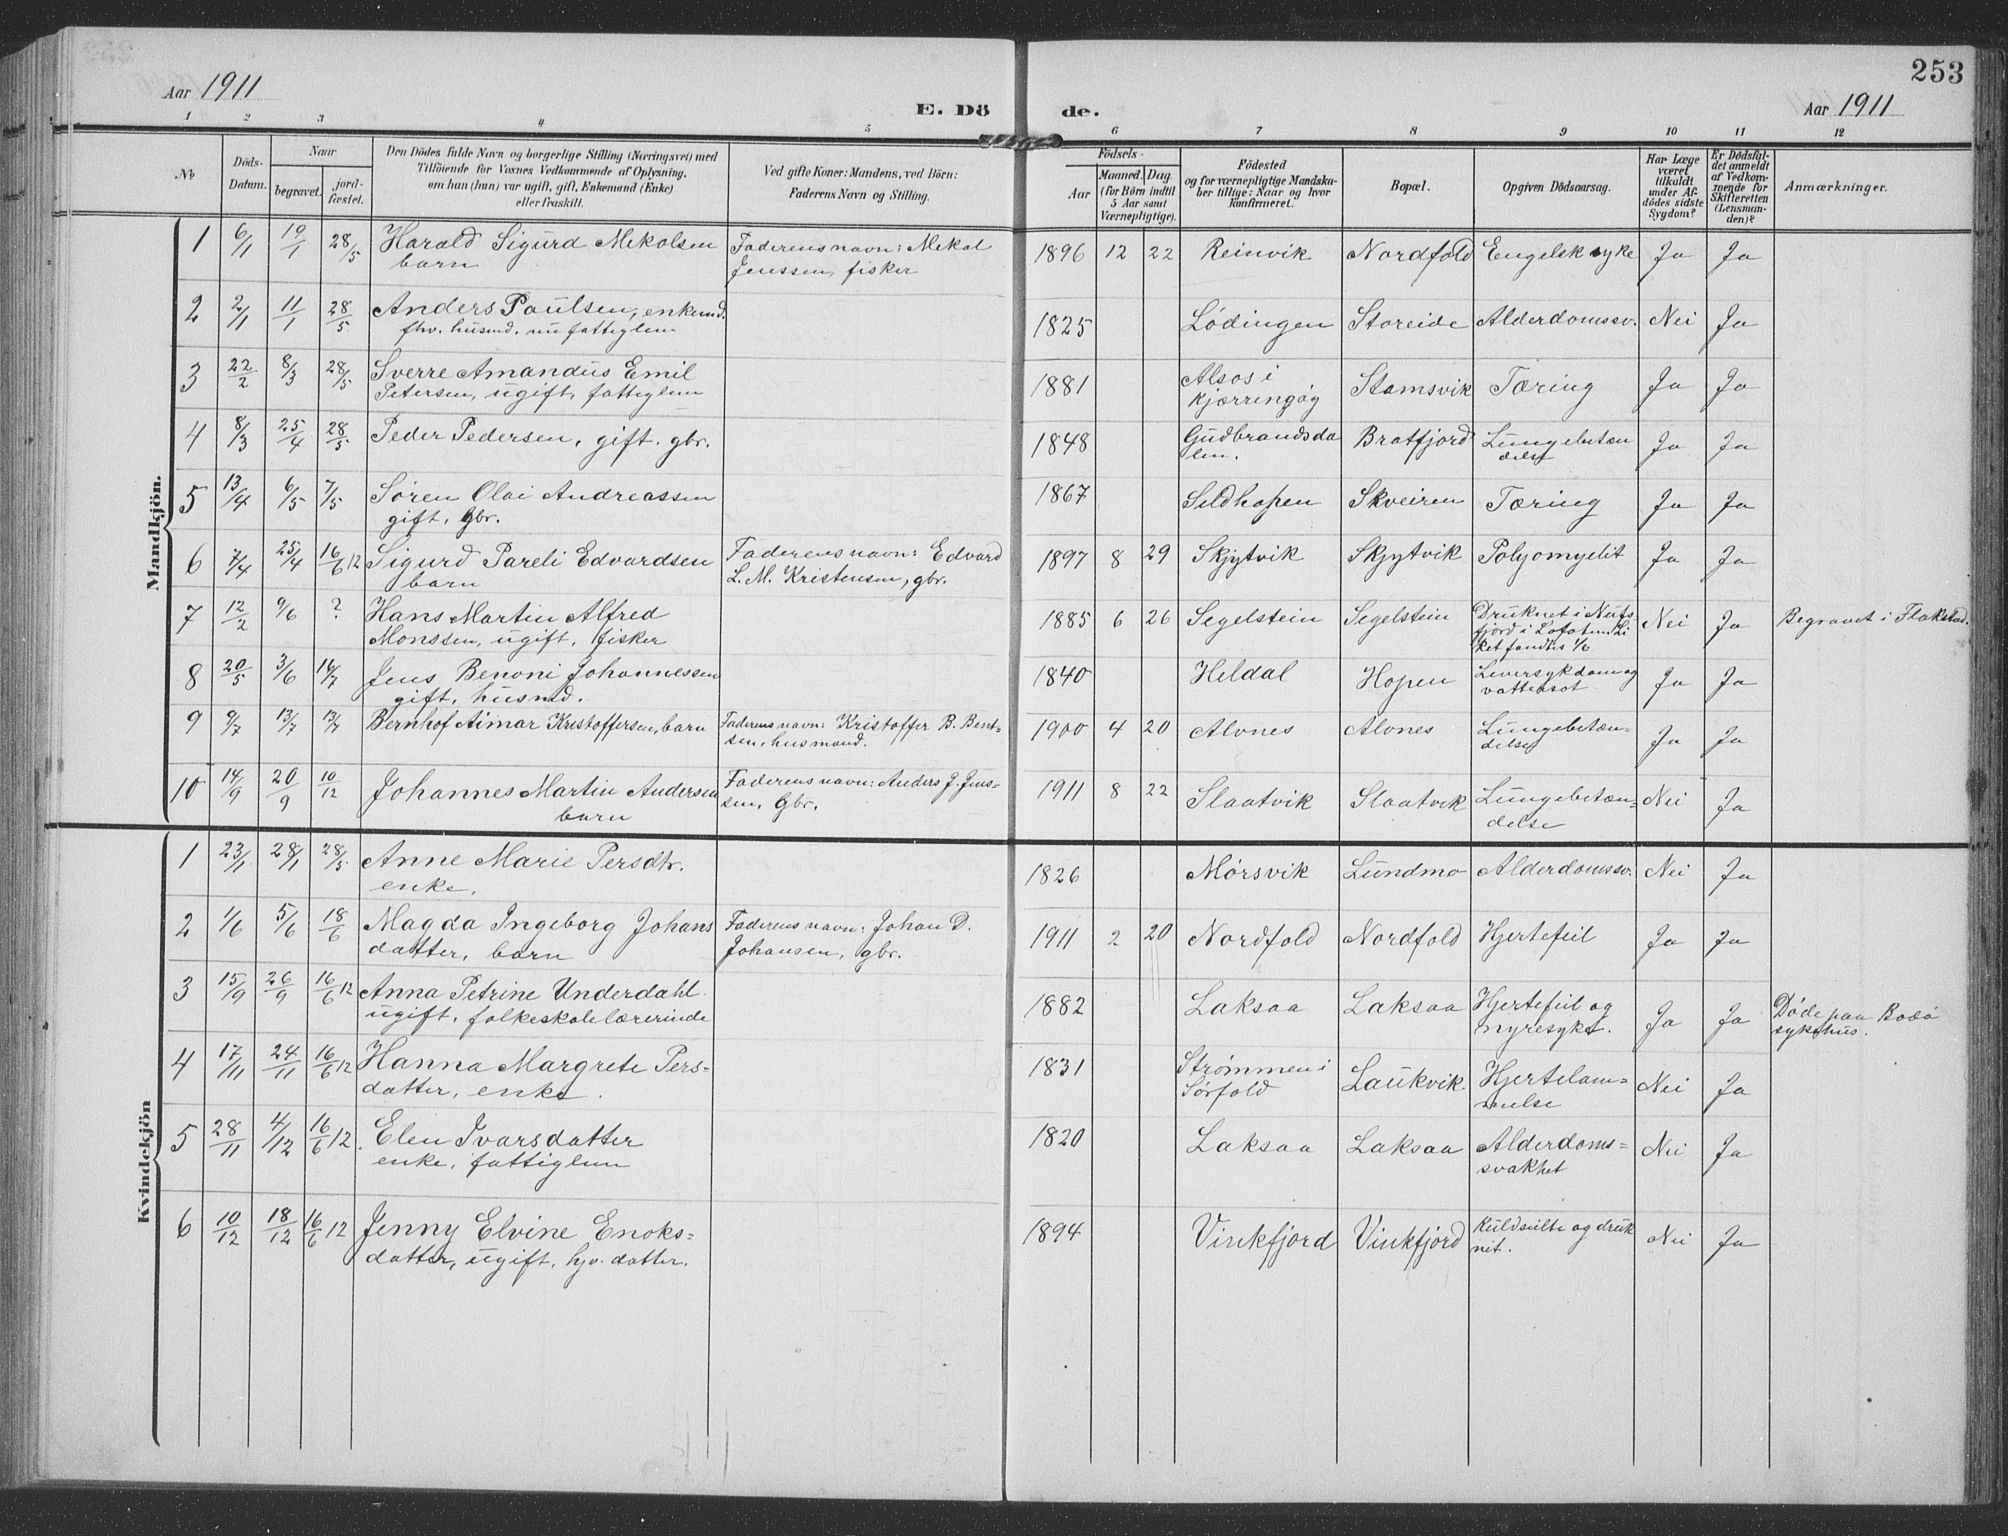 253
Aar 1911
E. Dö de.
Aar 1911
1 2 3 4 5 6 7 8 9 10 11 12
No
Döds-
Datum.
Naar
begravet.
jord-
fæstet.
Den Dödes fulde Navn og borgerlige Stilling (Næringsvei) med
Tilföiende for Voxnes Vedkommende af Oplysning,
om han (hun) var ugift, gift, Enkemand (Enke)
eller fraskilt.
Ved gifte Koner: Mandens, ved Börn:
Faderens Navn og Stilling.
Födsels-
Aar
Maaned. Dag.
(for Börn indtil
5 Aar samt
Værnepligtige).
Födested
og for værnepligtige Mandska-
ber tillige: Naar og hvor
konfirmeret.
Bopæl.
Opgiven Dödsaarsag.
Har Læge
været
tilkaldt
under Af-
dödes sidste
Sygdom?
Er Dödsfal-
det anmeldt
af Vedkom-
mende for
Skifteretten
(Lensman-
den)?
Anmærkninger.
Mandkjön.
1 6/1 19/1 28/5 Harald Sigurd Mekalsen Faderens navn: Mekal 1896 12 22 Reinvik Nordfold Engelsk syke Ja Ja
barn Jenssen, fisker
2 2/1 11/1 28/5 Anders Paulsen, enkemd. 1825 Lödingen Storeide Alderdomssv. Nei Ja
fhv. husmd. nu fattiglem
3 22/2 8/3 28/5 Sverre Amandus Emil 1881 Alsos i Stamsvik Tæring Ja Ja
Petersen, ugift, fattiglem Kjærringøy
4 8/3 25/4 28/5 Peder Pedersen, gift. gbr. 1848 Gudbrandsda Bratfjord Lungebetæn Ja Ja
len. delse
5 13/4 6/5 7/5 Søren Olai Andreassen 1867 Sildhopen Skveiren Tæring Ja Ja
gift, gbr.
6 7/4 25/4 16/6 12 Sigurd Pareli Edvardsen Faderens navn: Edvard 1897 8 29 Skjytvik Skjytvik Polyomyelit Ja Ja
barn L. M. Kristensen, gbr.
7 12/2 9/6 ? Hans Martin Alfred 1885 6 26 Segelstein Segelstein Druknet i Nuts Nei Ja Begravet i Flakstad.
Monssen, ugift, fisker fjord i Lofoten. Li
ket fandtes 1/6
8 20/5 3/6 14/7 Jens Benoni Johannessen 1840 Heldal Hopen Leversykdom og Ja Ja
gift, husmd. vattersot
9 9/7 13/7 13/7 Bernhof Aimar Kristoffersen, barn Faderens navn: Kristoffer B. Bent- 1900 4 20 Alvnes Alvnes Lungebetæn- Ja Ja
sen, husmand. delse
10 14/9 20/9 10/12 Johannes Martin Andersen Faderens navn: Anders J. Jens- 1911 8 22 Slaatvik Slaatvik Lungebetæn- Nei Ja
barn sen, Gbr. delse
Kvindekjön
1 23/1 28/1 28/5 Anne Marie Persdtr. 1826 Mørsvik Lundmo Alderdomssv. Nei Ja
enke.
2 1/6 5/6 18/6 Magda Ingeborg Johans Faderens navn: Johan D. 1911 2 20 Nordfold Nordfold Hjertefeil Ja Ja
datter, barn Johansen, gbr.
3 15/9 26/9 16/6 12 Anna Petrine Underdahl 1882 Laksaa Laksaa Hjertefeil og Ja Ja Døde paa Bodø
ugift, folkeskolelærerinde nyresyke. sykehus.
4 17/11 24/11 16/6 12 Hanna Margrete Pers- 1831 Strømmen i Laukvik. Hjertelam- Nei Ja
datter, enke. Sørfold melse
5 28/11 4/12 16/6 12 Elen Ivarsdatter 1820 Laksaa Laksaa Alderdoms- Nei Ja
enke, fattiglem svakhet
6 10/12 18/12 16/6 12 Jenny Elvine Enoks- 1894 Vinkfjord Vinkfjord Kuldsulte og druk Nei Ja
datter, ugift, hjv. datter. net.